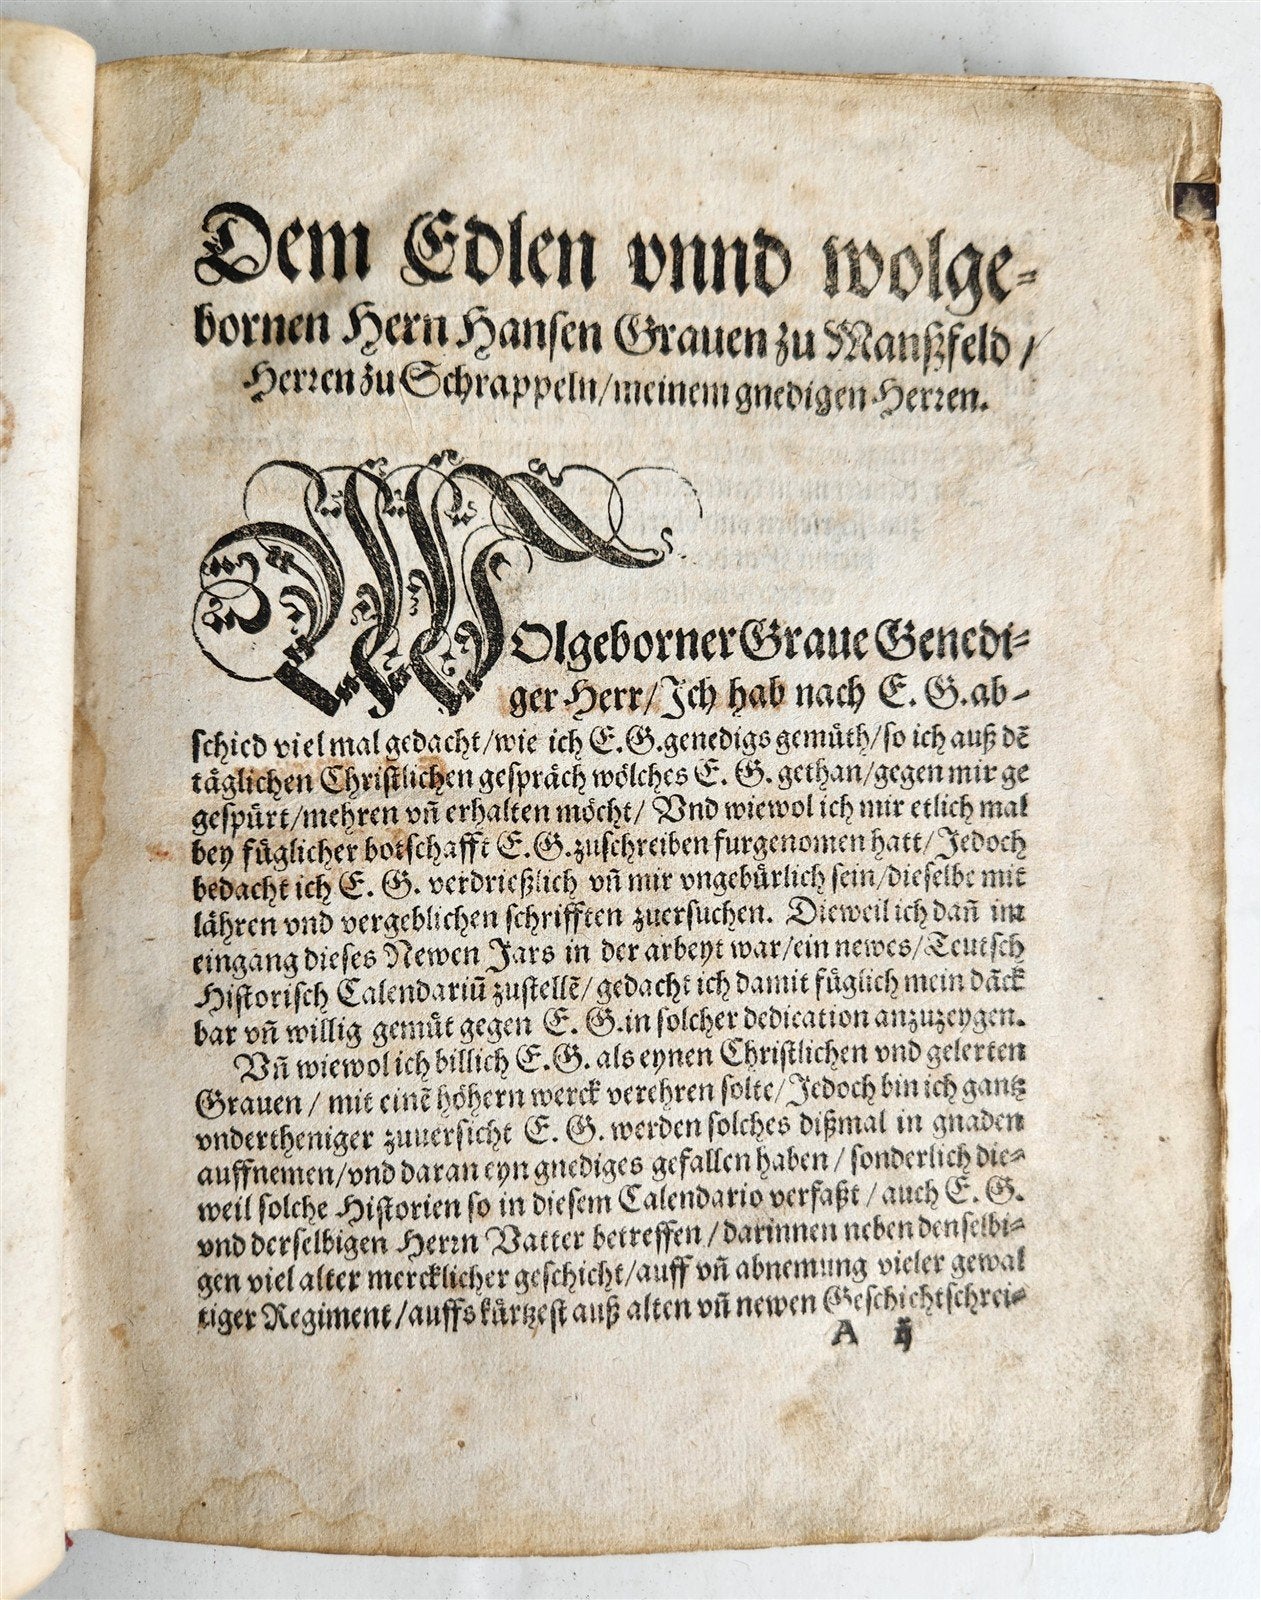 Dem Edlen vnnd wolge⸗
bornen Hern Hansen Grauen zu Manßfeld /
Herren zu Schrappeln / meinem gnedigen Herren.
WOlgeborner Graue Genedi⸗
ger Herr / Jch hab nach E. G. ab⸗
schied viel mal gedacht / wie ich E. G. genedigs gemüth / so ich auß dē
täglichen Christlichen gespräch wölches E. G. gethan / gegen mir ge
gespürt / mehren vñ erhalten möcht / Vnd wiewol ich mir etlich mal
bey füglicher botschafft E. G. zuschreiben furgenomen hatt / Jedoch
bedacht ich E. G. verdrießlich vñ mir vngebürlich sein / dieselbe mit
lähren vnd vergeblichen schrifften zuersuchen. Dieweil ich dañ im
eingang dieses Newen Jars in der arbeyt war / ein newes / Teutsch
Historisch Calendariū zustellē / gedacht ich damit füglich mein dāck
bar vñ willig gemüt gegen E. G. in solcher dedication anzuzeygen.
Vñ wiewol ich billich E. G. als eynen Christlichen vnd gelerten
Grauen / mit einē höhern werck verehren solte / Jedoch bin ich gantz
vndertheniger zuuersicht E. G. werden solches dißmal in gnaden
auffnemen / vnd daran eyn gnediges gefallen haben / sonderlich die⸗
weil solche Historien so in diesem Calendario verfaßt / auch E. G.
vnd derselbigen Herrn Vatter betreffen / darinnen neben denselbi⸗
gen viel alter mercklicher geschicht / auff vñ abnemung vieler gewal
tiger Regiment / auffs kürtzest auß alten vñ newen Geschichtschrei⸗
A ij